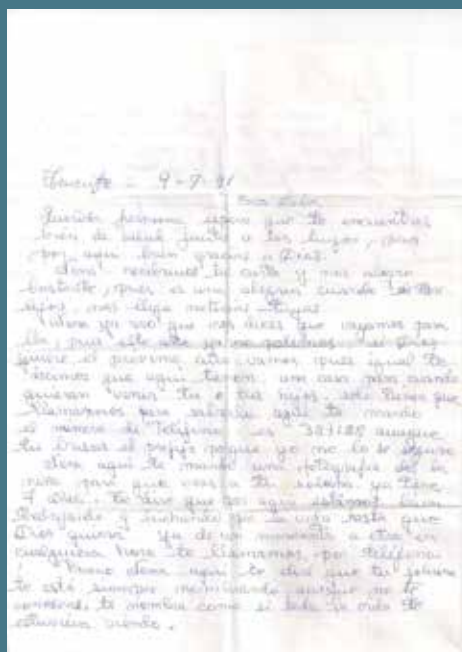 Tenerife - 9-7-91
Querida hermana espero que te encuentres
bien de salud junto a tus hijos, pues
por aquí bien gracias a Dios.
recibimos tu carta y nos alegro
bastante, pues es una alegria cuando
nos llega noticias tuyas
veo que nos dices que vayamos para
pues este año ya no podemos si Dios
quiere el proximo año vamos pues igual te
decimos que aqui tienen una casa para cuando
quieran venir tu o tus hijos, solo tienes que
llamarnos para aqui te mando
el número de Teléfono es aunque
tu buscas el prefijo porque yo no lo se seguro
aqui te mando una fotografia de la
niña para que veas a tu sobrina ya tiene
7 años. te digo que por aqui estamos bien
trabajando y luchando por la vida hasta que
Dios quiera ya de un momento a otro en
cualquier hora te llamamos por teléfono
Bueno aqui te digo que tu
te está siempre aunque no te
te nombra como si toda la vida te
estuviera viendo.